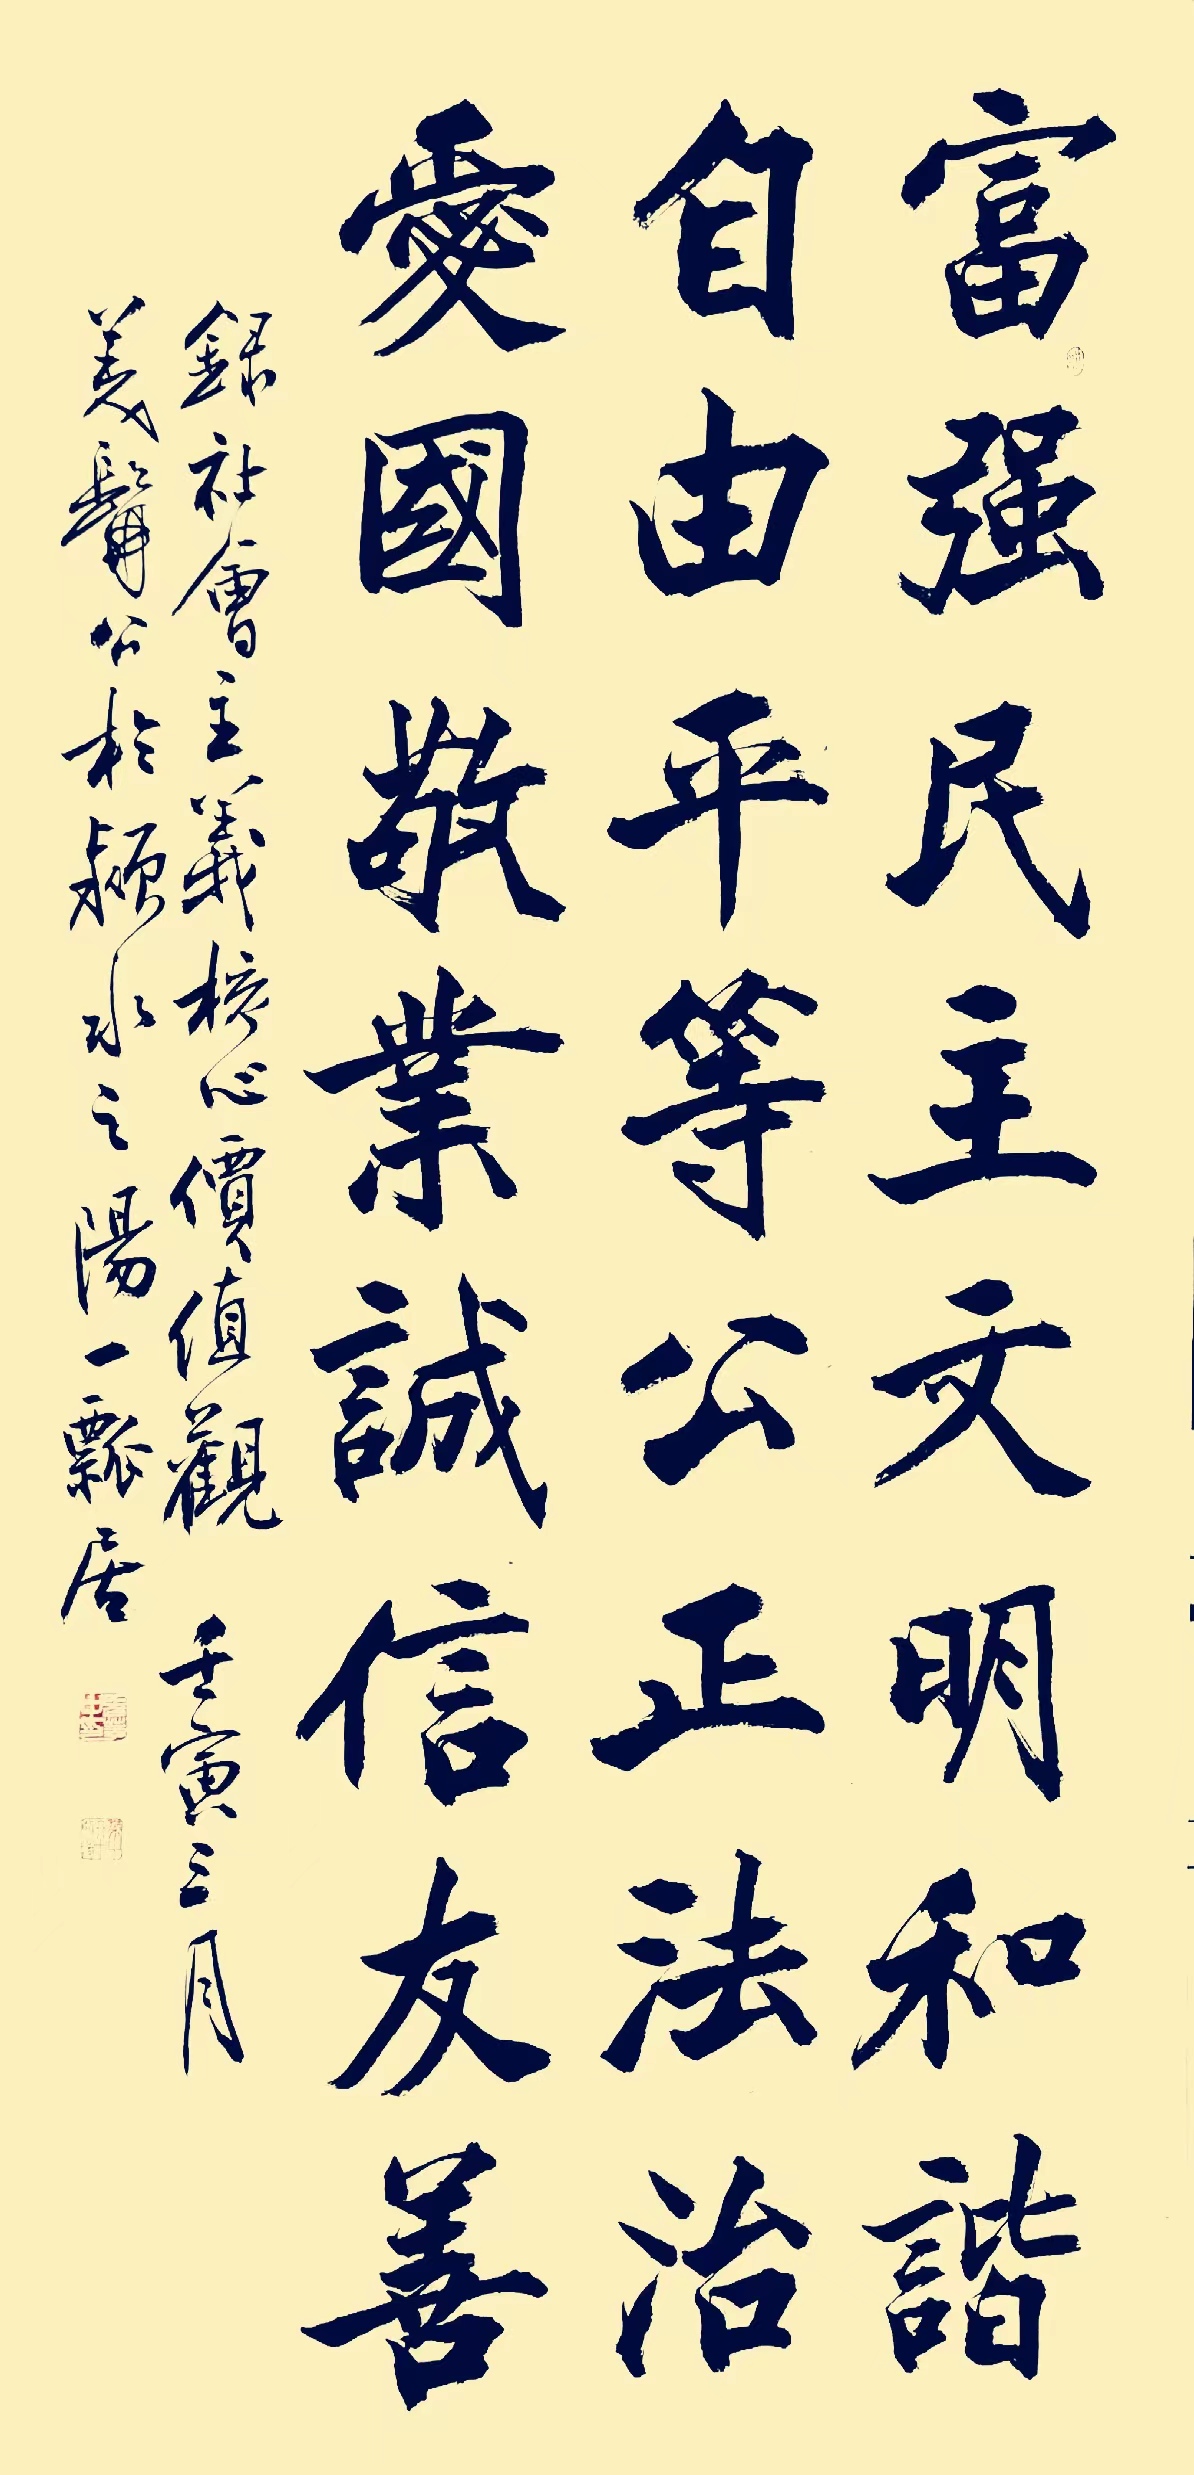 富强民主文明和諧
自由平等公正法治
愛國敬業誠信友善
録社會主義核心價值觀 壬寅三月
美髯公於潁水之陽一瓢居